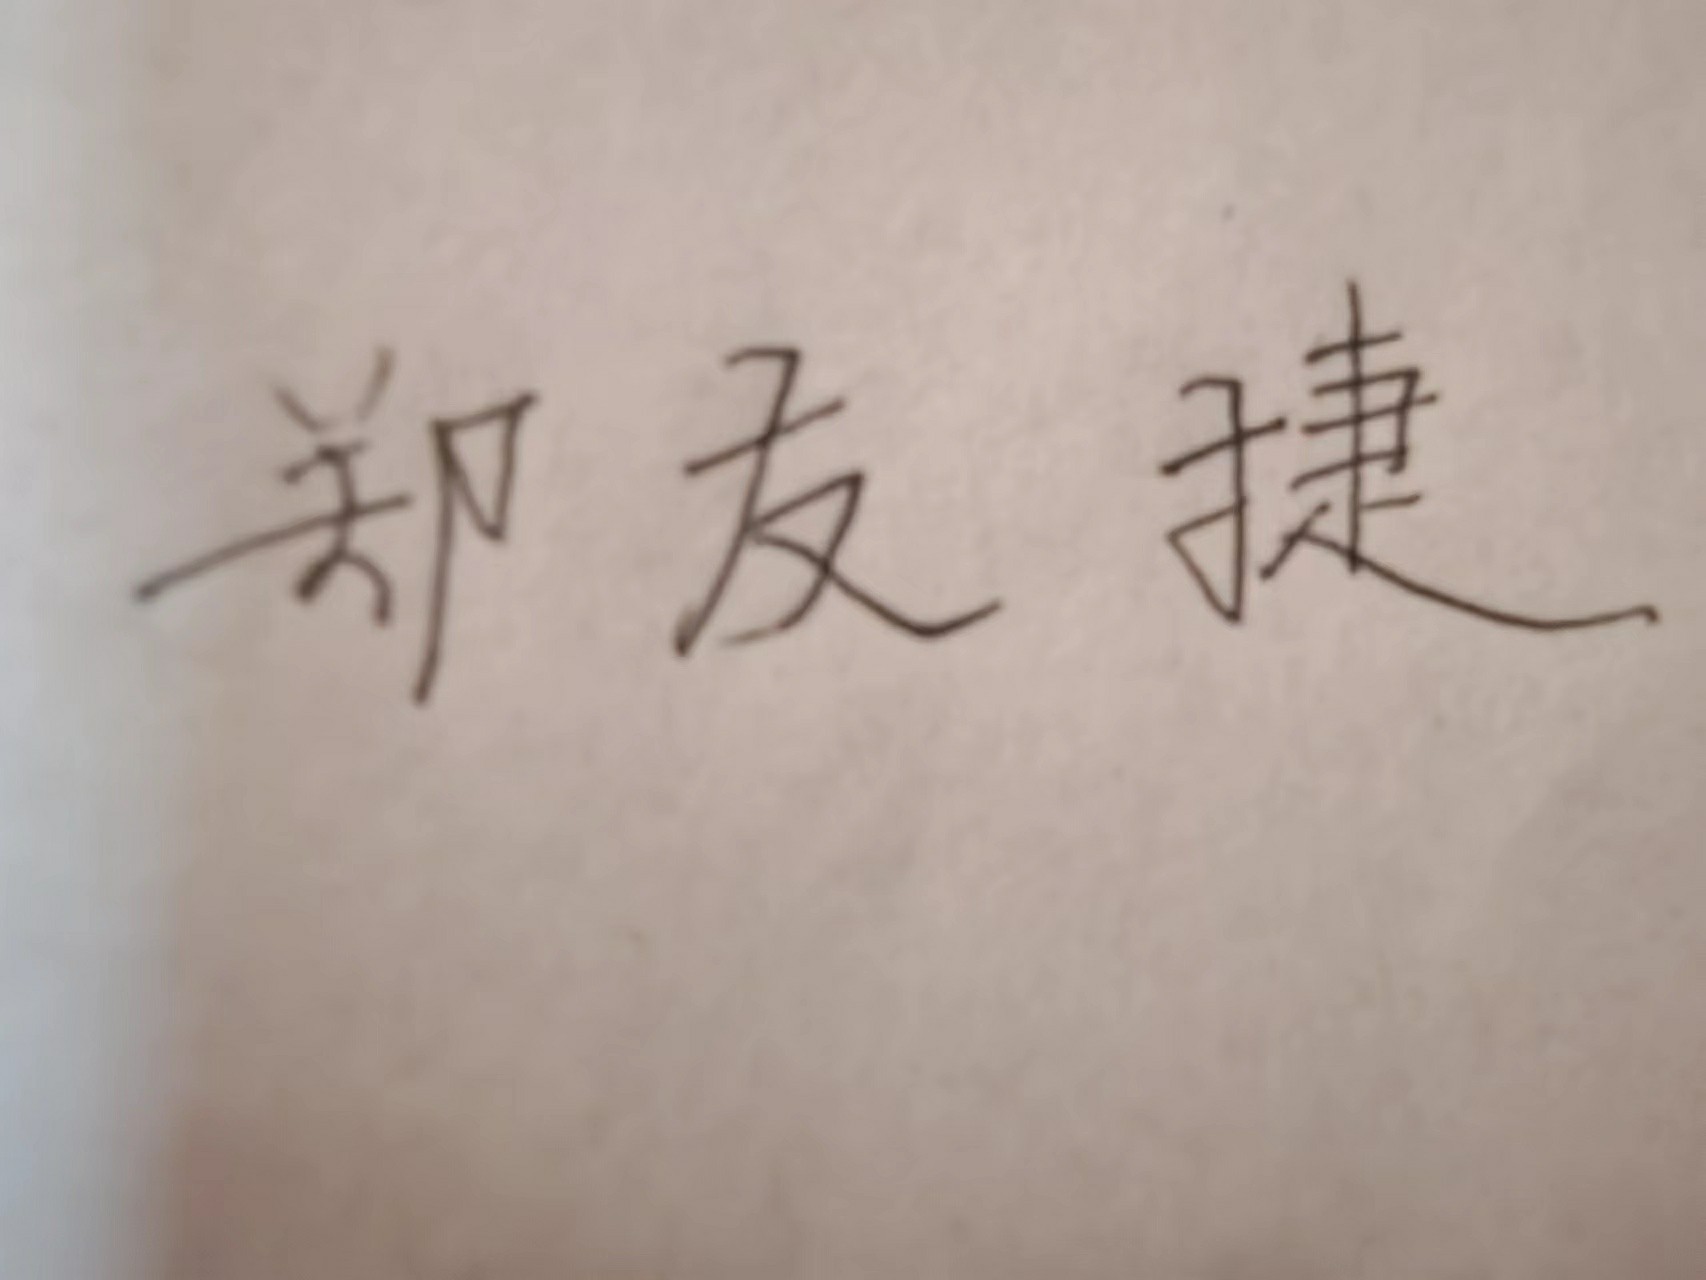 郑友捷